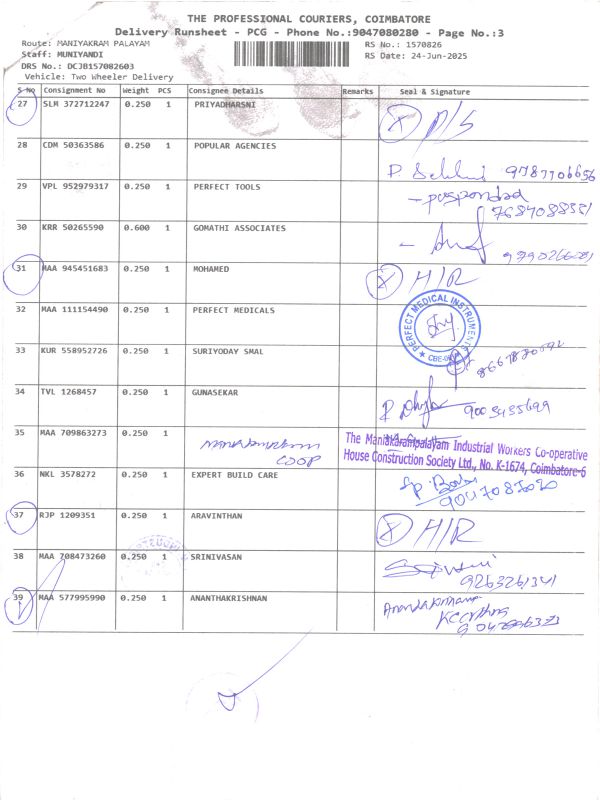 THE PROFESSIONAL COURIERS, COIMBATORE
Delivery Runsheet - PCG - Phone No.:9047080280 - Page No.:3
Route: MANIYAKRAM PALAYAM
RS No.: 1570826
Staff: MUNIYANDI
RS Date: 24-Jun-2025
DRS No.: DCJB157082603
Vehicle: Two Wheeler Delivery
S No Consignment No Weight PCS Consignee Details Remarks Seal & Signature
27 SLM 372712247 0.250 1 PRIYADHARSNI X D/S
28 CDM 50363586 0.250 1 POPULAR AGENCIES 9787706656
29 VPL 952979317 0.250 1 PERFECT TOOLS
30 KRR 50265590 0.600 1 GOMATHI ASSOCIATES
31 MAA 945451683 0.250 1 MOHAMED X H/R
32 MAA 111154490 0.250 1 PERFECT MEDICALS PERFECT MEDICAL INSTRUMENTS
33 KUR 558952726 0.250 1 SURIYODAY SMAL
34 TVL 1268457 0.250 1 GUNASEKAR 9003455699
35 MAA 709863273 0.250 1 COOP
The Maniakarampalayam Industrial Workers Co-operative
House Construction Society Ltd., No. K-1674, Coimbatore-6
36 NKL 3578272 0.250 1 EXPERT BUILD CARE
37 RJP 1209351 0.250 1 ARAVINTHAN X H/R
38 MAA 708473260 0.250 1 SRINIVASAN 9263261341
39 MAA 577995990 0.250 1 ANANTHAKRISHNAN